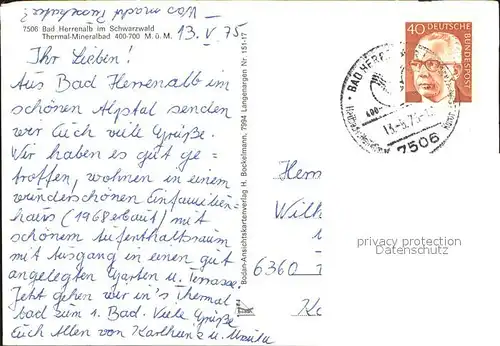 Was macht
7506 Bad Herrenalb im Schwarzwald
Thermal-Mineralbad 400-700 M. ü. M.
13. V. 75
Ihr Lieben!
Aus Bad Herrenalb im
schönen Alptal senden
wir Euch viele Grüße.
Wir haben es gut ge-
troffen, wohnen in einem
wunderschönen Einfamilien-
haus (1968 erbaut) mit
schönem Aufenthaltsraum
mit Ausgang in einen gut
angelegten Garten u. Terrasse.
Jetzt gehen wir in's Thermal
bad zum 1. Bad. Viele Grüße
Euch Allen von Karlheinz u. Ursula
Bodan-Ansichtskartenverlag H. Bockelmann, 7994 Langenargen Nr. 15117
40
DEUTSCHE
BUNDESPOST
BAD HERR
400-
13.-5.75-
7506
Herrn
Wilh
6360
privacy protection
Datenschutz